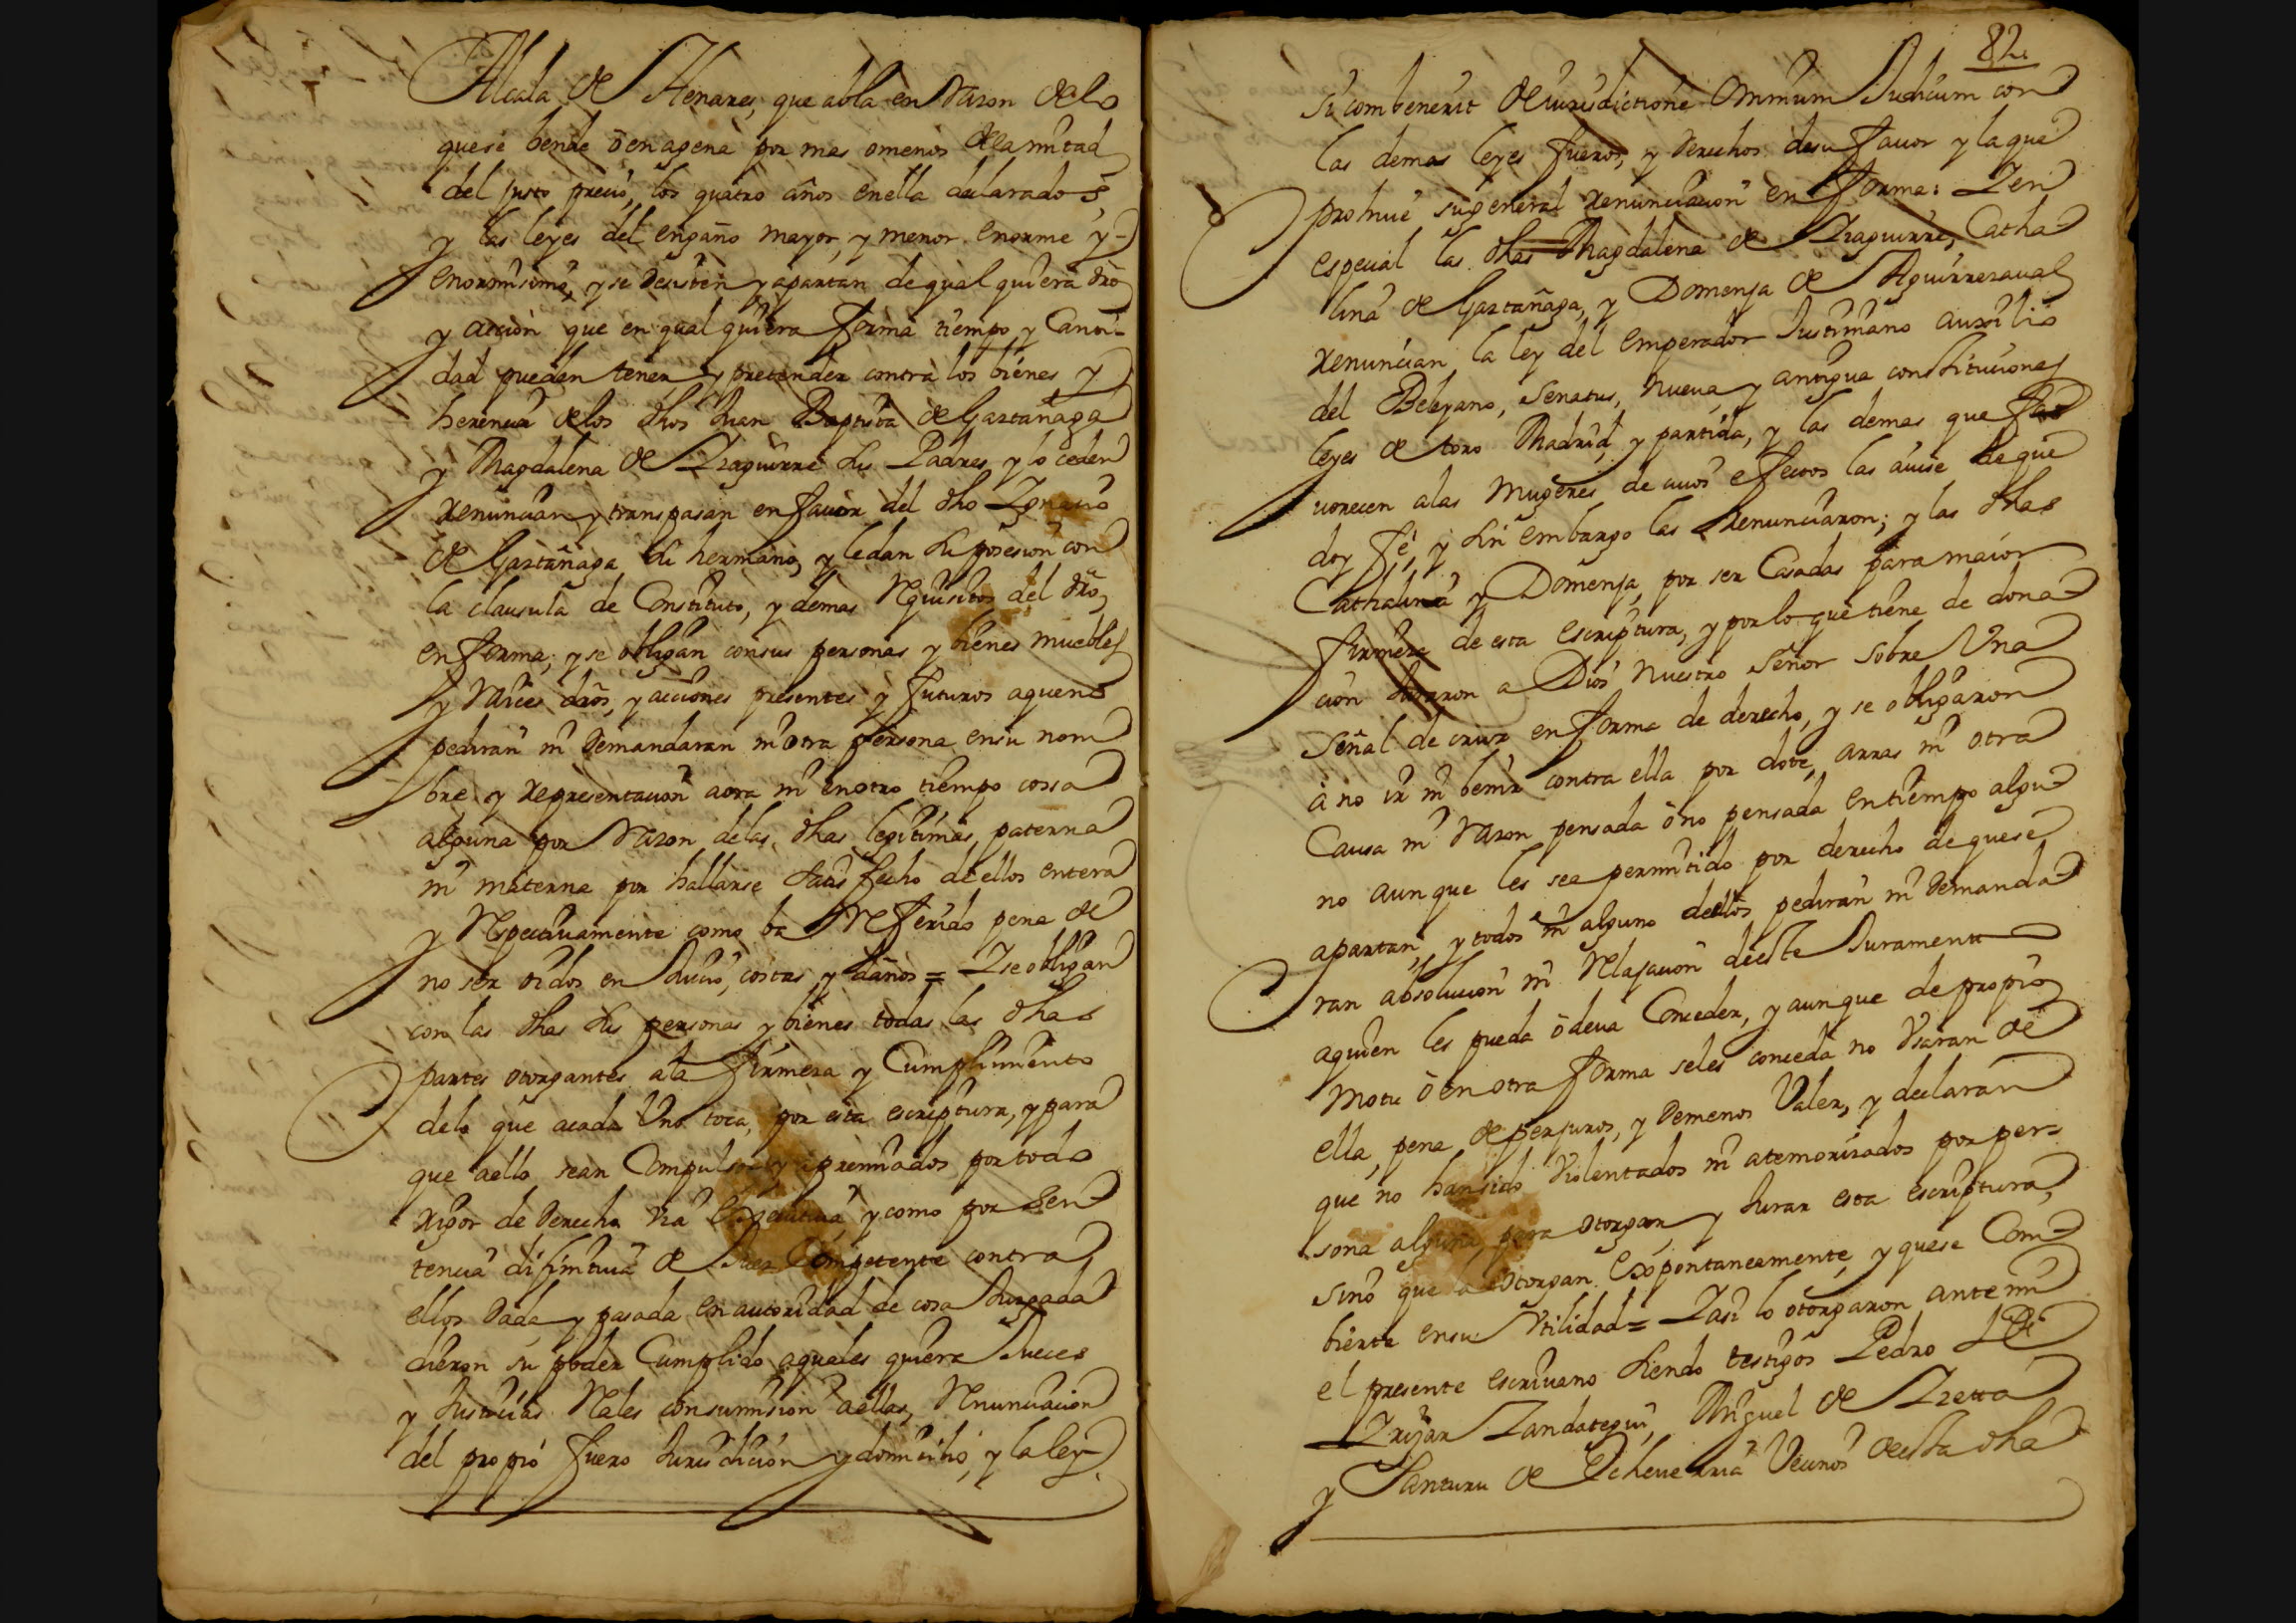 Alcala de Henares, que abla en Razon delo
que se bende o enagena por mas o menos dela mitad
del justo precio, los quatro años en ella declarados
y las leyes del engaño mayor, y menor enorme y
enormisima, y se desisten y apartan de qual quiera dro
y acción que en qual quiera forma tiempo y Canti-
dad puedan tener y pretender contra los bienes y
herencia delos dhos Juan Baptista de Gaztañaga
y Magdalena de Yzaguirre sus Padres, y lo ceden
renuncian y transpasan en favor del dho Ygnacio
de Gaztañaga su hermano, y le dan su posesion con
la clausula de Constituto, y demas Requisitos del dro,
en forma; y se obligan con sus personas y bienes muebles
y Raices dros, y acciones presentes y futuros aque no
pediran ni demandaran ni otra persona en su nom
bre y representacion aora ni en otro tiempo cossa
alguna por Razon delas dhas legitimas, paterna
ni materna por hallarse satisfecho de ellos entera
y Respectivamente como ba Referido pena de
no ser oidos en Juicio, costas y daños = Y se obligan
con las dhas sus personas y bienes todas las dhas
partes otorgantes ala firmeza y Cumplimiento
delo que acada Uno toca, por esta escriptura, y para
que aello sean Compulsos y apremiados por todo
rigor de derecho via Executiva, y como por Sen
tencia difinitiva de Juez Competente contra
ellos dada, y pasada en autoridad de cosa Juzgada
dieron su poder Cumplido aquales quiera Jueces
y Justicias Rales con sumision aellas, Renunciacion
del propio fuero Jurisdicion y domicilio, y la ley
82
Si combenerit de iurisdictione Omnium Judicum con
las demas leyes fueros, y derechos de su favor y la que
prohive su general renunciacion en forma: Y en
especial las dhas Magdalena de Yzaguirre, Catha
lina de Gaztañaga, y Domenja de Aguirrezaual
renuncian la ley del emperador Justiniano auxilio
del Beleyano, Senatus, nueva, y antigua constituciones
leyes de toro Madrid, y partida, y las demas que fa
vorecen alas Mugeres, de cuios efectos las auise de que
doy fé, y sin embargo las Renunciaron; y las dhas
Cathalina y Domenja, por ser Casadas para maior
firmeza de esta escriptura, y por lo que tiene de dona
cion Juraron a Dios nuestro Señor sobre Una
Señal de cruz en forma de derecho, y se obligaron
à no ir ni benir contra ella por dote, arras ni otra
Causa ni Razon pensada ò no pensada en tiempo algu
no aunque les sea permitido por derecho de que se
apartan, y todos ni alguno dellos pediran ni demanda
ran absolucion ni Relajacion de este Juramento
aquien les pueda ò deva Conceder, y aunque de propio
Motu ò en otra forma seles conceda no Usaran de
ella, pena de perjuros, y de menos Valer, y declaran
que no han sido Violentados ni atemorisados por per-
sona alguna para otorgar, y Jurar esta escriptura,
sino que la otorgan Expontaneamente, y que se Com
bierte en su Utilidad = Y asi lo otorgaron ante mi
el presente escrivano siendo testigos Pedro de
Yrijar Yandategui, Miguel de Yzetta
y Santuru de Echeverria Vecinos de esta dha